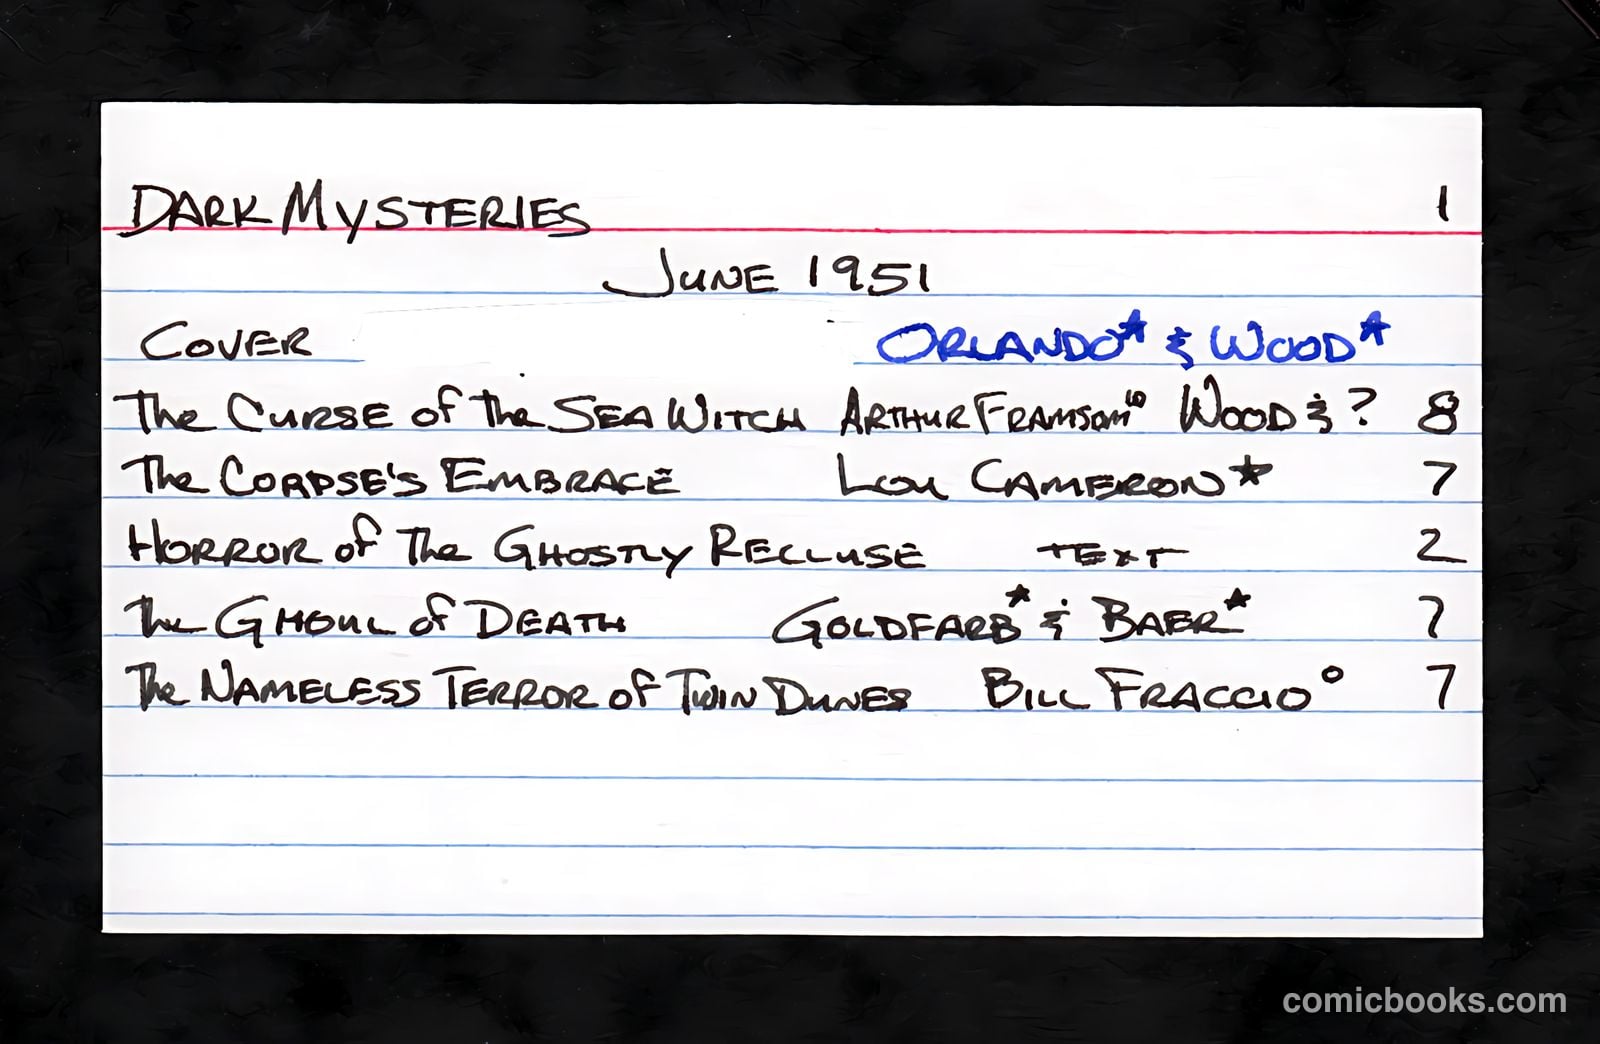 DARK MYSTERIES 1
JUNE 1951
COVER ORLANDO* & WOOD*
The CURSE of The SEA WITCH ARTHUR FRAMSOM" WOOD & ? 8
The CORPSE'S EMBRACE LOU CAMERON* 7
HORROR of The GHOSTLY RECLUSE TEXT 2
The GHOUL of DEATH GOLDFARB* & BAER* 7
The NAMELESS TERROR of TWIN DUNES BILL FRACCIO° 7
comicbooks.com